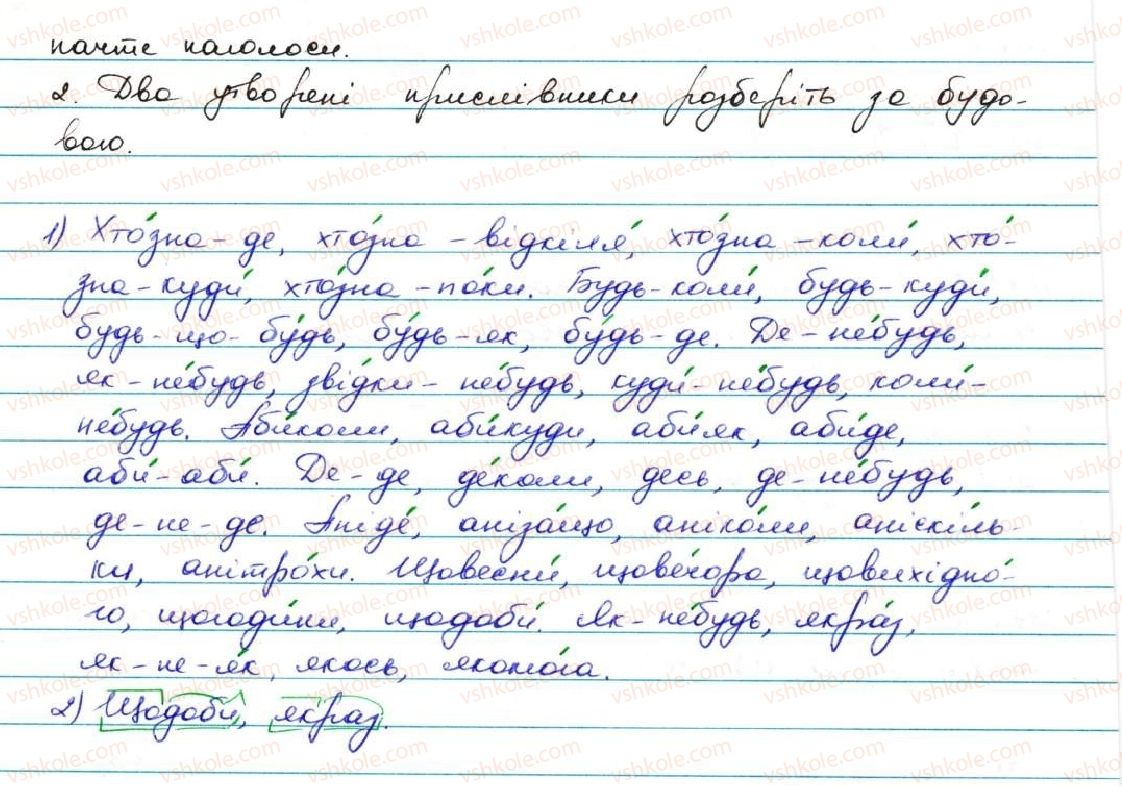 начте наголоси.
2. Два утворені прислівники розберіть за будо-
вою.
1) Хто́зна-де, хто́зна-відкіля́, хто́зна-коли́, хто́-
зна-куди́, хто́зна-по́ки. Будь-коли́, будь-куди́,
будь-що-бу́дь, бу́дь-як, бу́дь-де. Де-не́будь,
як-не́будь, зві́дки-не́будь, куди́-не́будь, коли́-
не́будь. Аби́коли, аби́куди, аби́як, аби́де,
аби́-аби́. Де-де, де́коли, десь, де-не́будь,
де-не-де. Аніде́, аніза́що, аніко́ли, аніскі́ль-
ки, анітро́хи. Щовесни́, щове́чора, щовихідно́-
го, щогоди́ни, щодоби́. Як-не́будь, якра́з,
як-не-я́к, якось, якомо́га.
2) Щодоби, якраз.